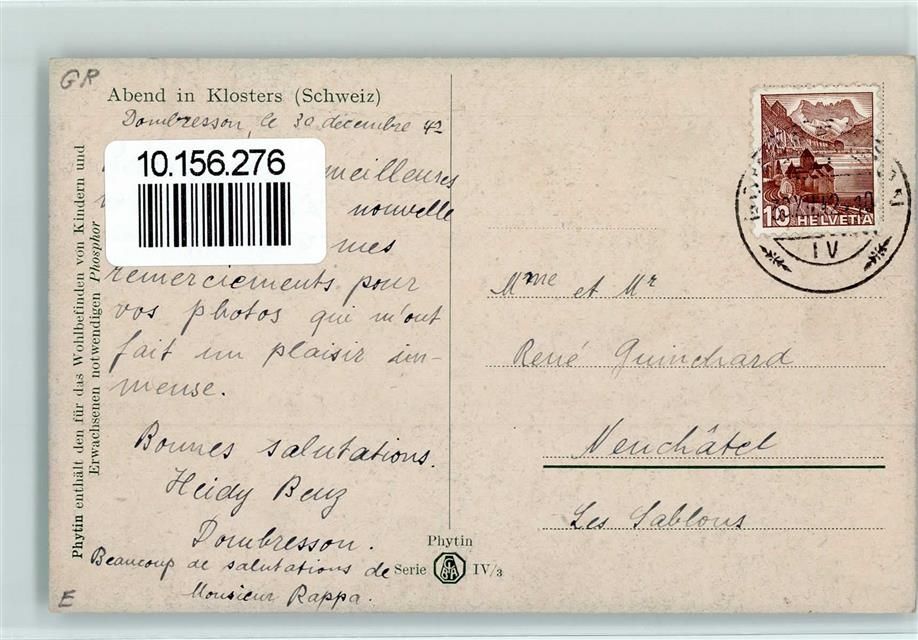 GR
Abend in Klosters (Schweiz)
Dombresson, le 30 décembre 42
10.156.276
meilleures
nouvelle
mes
remerciements pour
vos photos qui m'ont
fait un plaisir im-
mense.
Bonnes salutations.
Heidy Benz
Dombresson.
Beaucoup de salutations de
Monsieur Rappa.
E
Phytin enthält den für das Wohlbefinden von Kindern und
Erwachsenen notwendigen Phosphor
Phytin
Serie IV/3
10 HELVETIA
IV
Mme et Mr
René Guinchard
Neuchâtel
Les Sablons